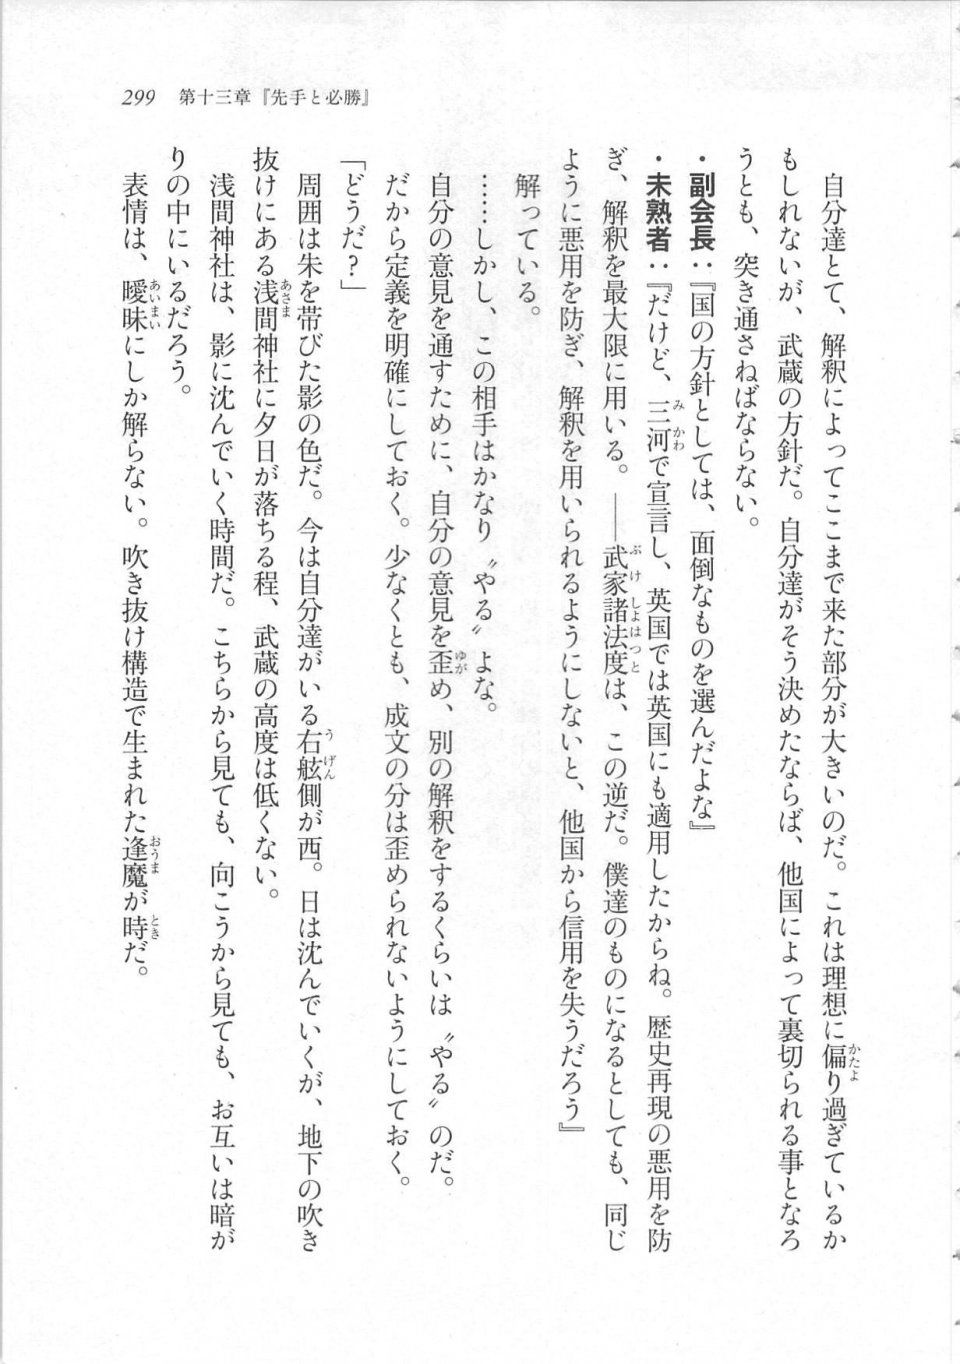 299 第十三章『先手と必勝』
自分達とて、解釈によってここまで来た部分が大きいのだ。これは理想に偏り過ぎているか
もしれないが、武蔵の方針だ。自分達がそう決めたならば、他国によって裏切られる事となろ
うとも、突き通さねばならない。
・副会長：『国の方針としては、面倒なものを選んだよな』
・未熟者：『だけど、三河で宣言し、英国では英国にも適用したからね。歴史再現の悪用を防
ぎ、解釈を最大限に用いる。——武家諸法度は、この逆だ。僕達のものになるとしても、同じ
ように悪用を防ぎ、解釈を用いられるようにしないと、他国から信用を失うだろう』
解っている。
……しかし、この相手はかなり〝やる〟よな。
自分の意見を通すために、自分の意見を歪め、別の解釈をするくらいは〝やる〟のだ。
だから定義を明確にしておく。少なくとも、成文の分は歪められないようにしておく。
「どうだ？」
周囲は朱を帯びた影の色だ。今は自分達がいる右舷側が西。日は沈んでいくが、地下の吹き
抜けにある浅間神社に夕日が落ちる程、武蔵の高度は低くない。
浅間神社は、影に沈んでいく時間だ。こちらから見ても、向こうから見ても、お互いは暗が
りの中にいるだろう。
表情は、曖昧にしか解らない。吹き抜け構造で生まれた逢魔が時だ。